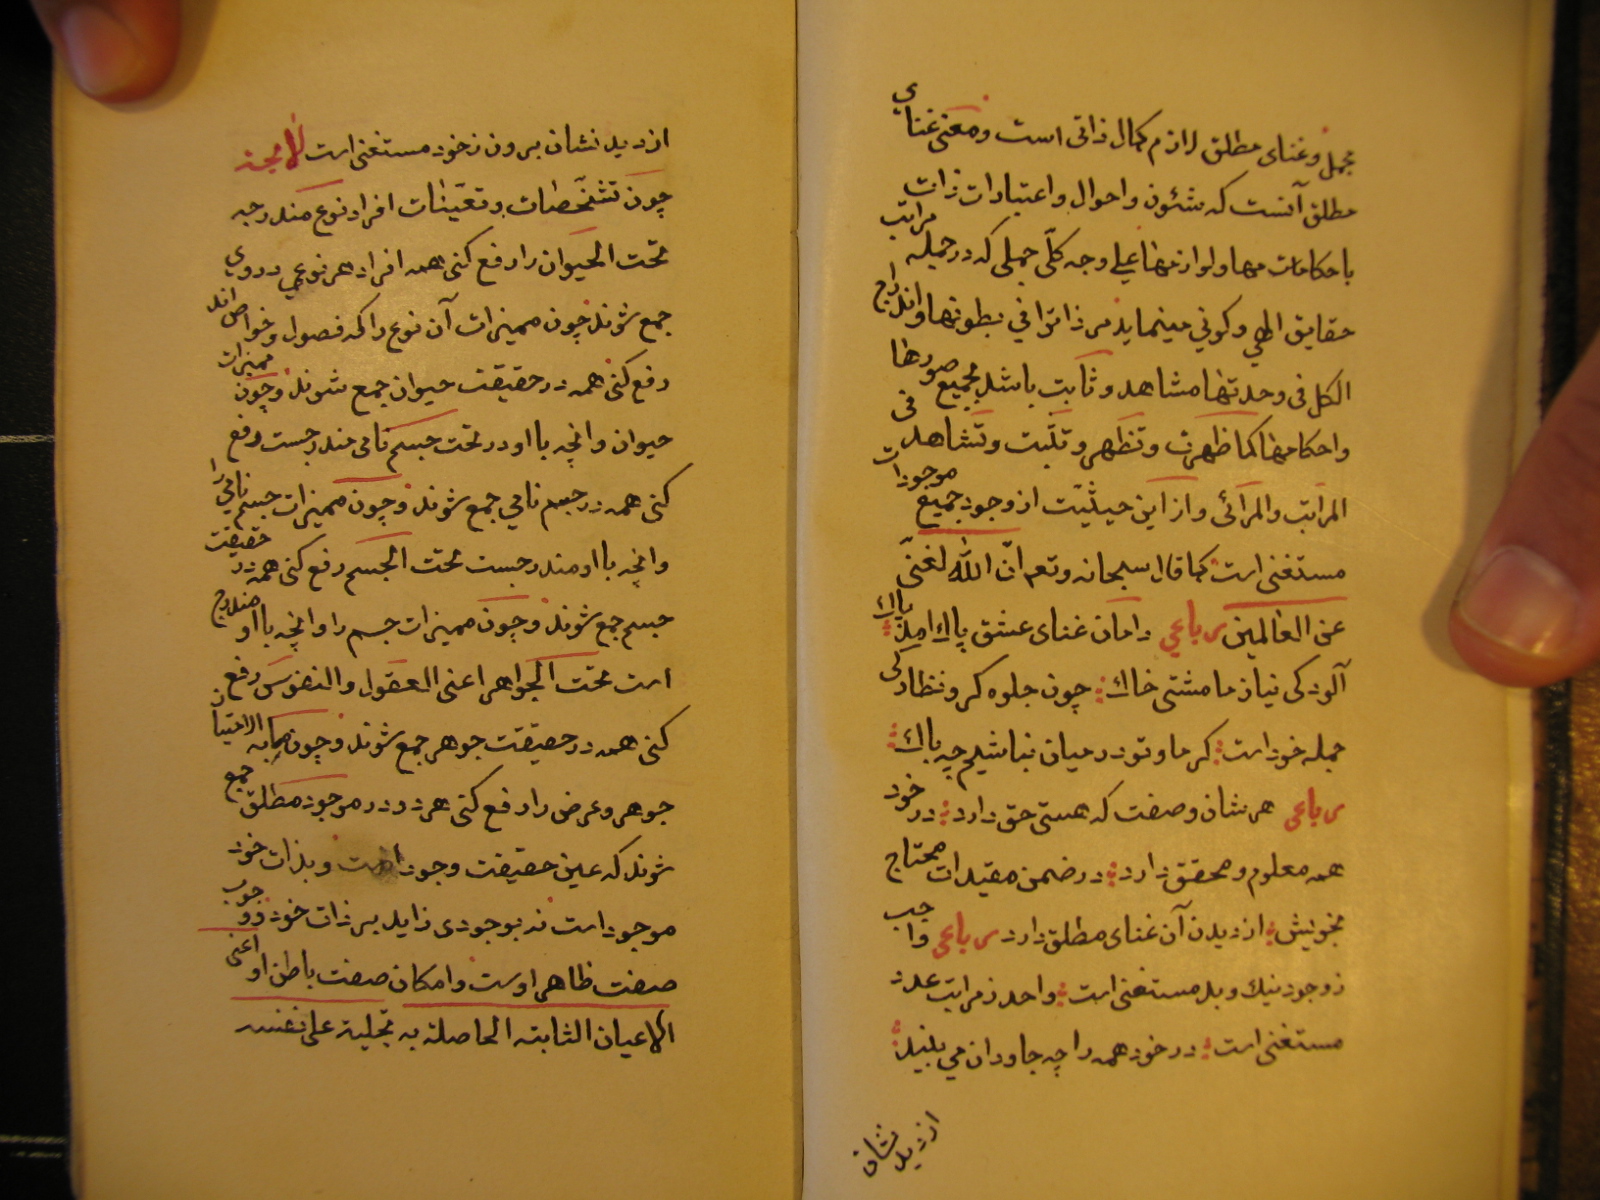 مجمل وغنای مطلق لازم کمال ذاتی است ومعنی غنای
مطلق آنست که شئون واحوال واعتبارات ذات
باحکامها ولوازمها علی وجه کلّی جملی که در جمله مراتب
حقایق الهی وکونی مینماید مر ذاترا فی بطونها واندراج
الکل فی وحدتها مشاهد وثابت باشد بجمیع صورها
واحکامها کما ظهرت وتظهر وتثبت وتشاهد فی
المراتب والمرائی واز این حیثیّت از وجود جمیع موجودات
مستغنی است کما قال سبحانه وتعم انّ الله لغنیّ
عن العالمین رباعی دامان غنای عشق پاک امد پاک
آلودکی نیاز ما مشتی خاک چون جلوه کر ونظارکی
جمله خود است کر ما وتو در میان نباشیم چه باک
رباعی هر شان وصفت که هستی حق دارد در خود
همه معلوم ومحقق دارد در ضمن مقیدات محتاج
بخویش از دیدن آن غنای مطلق دارد رباعی واجب
ز وجود نیک وبد مستغنی است واحد ز مراتب عدد
مستغنی است در خود همه را چه جاودان می بیند
از دید نشان
از دید نشان برون ز خود مستغنی است لامحیة
چون تشخّصات وتعیّنات افراد نوع مندرجه
تحت الحیوان را رفع کنی همه افراد هر نوعی در وی
جمع شوند چون ممیزات آن نوع را که فصول وخواص اند
رفع کنی همه در حقیقت حیوان جمع شوند وچون ممیزات
حیوان وانچه با او در تحت جسم نامی مندرجست رفع
کنی همه در جسم نامی جمع شوند وچون ممیزات جسم نامی را
وانچه با او مندرجست تحت الجسم رفع کنی همه در حقیقت
جسم جمع شوند وچون ممیزات جسم را وانچه با او مندرج
است تحت الجواهر اعنی العقول والنفوس رفع
کنی همه در حقیقت جوهر جمع شوند وچون مابه الامتیاز
جوهر وعرض را رفع کنی هر دو در موجود مطلق جمع
شوند که عین حقیقت وجود است وبذات خود
موجود است نه بوجودی زاید بر ذات خود ووجوب
صفت ظاهر اوست وامکان صفت باطن او اعنی
الاعیان الثابته الحاصلة به تجلیة علی نفسه